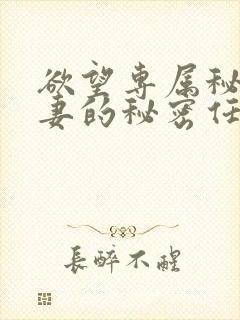 欲望专属秘
妻的秘密任
長醉不醒